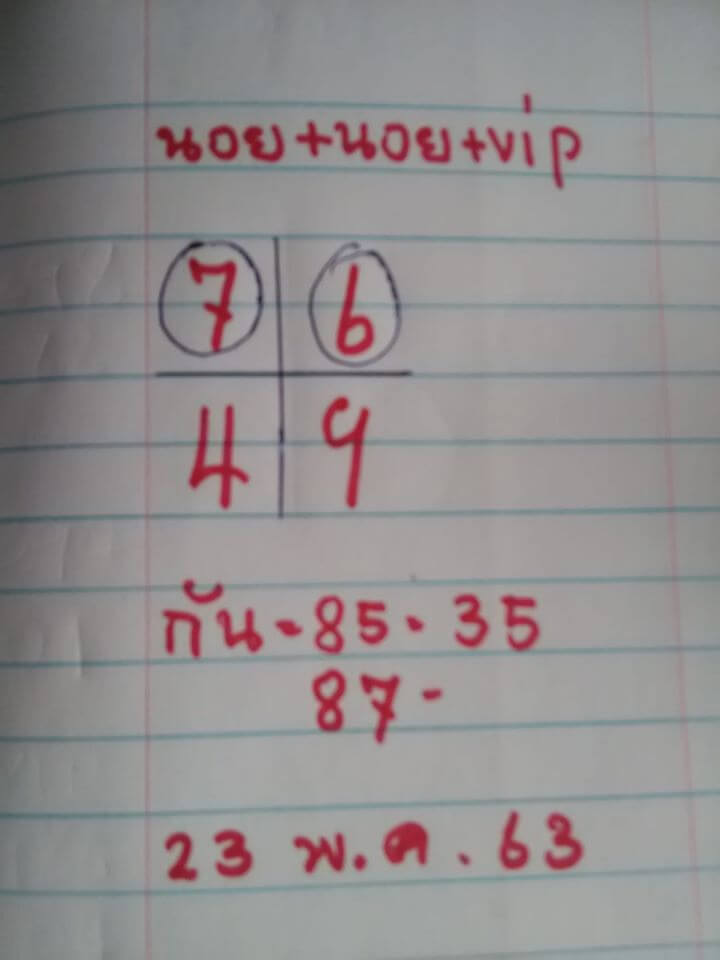 นอย+นอย+vip
7 6
4 9
กัน-85-35
87-
23 พ.ค.63